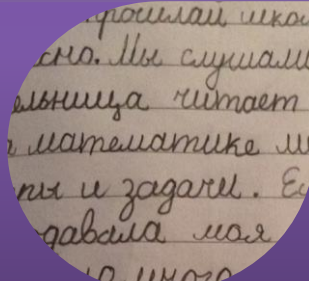 сно. Мы слушали
ельница читает
математике м
ты и задачи. Ес
давала моя
много